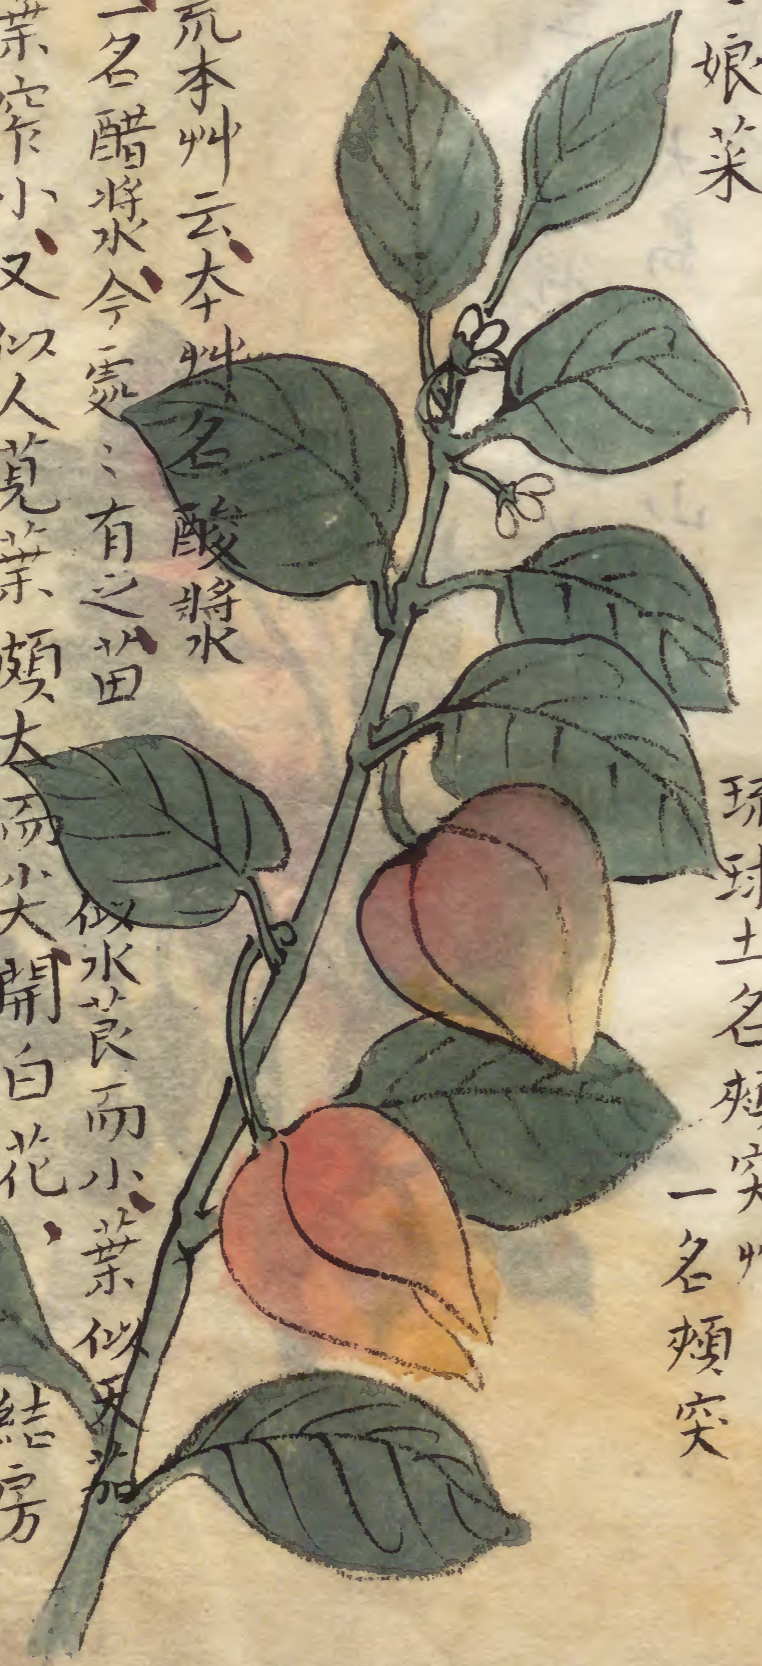 娘菜
琉球土名頰突
一名頰突
荒本艸云本艸名酸漿水
一名醋漿水今處〻有之苗
似水莨而小葉似天茄
葉窄小又似人莧葉頗大而尖開白花
結房